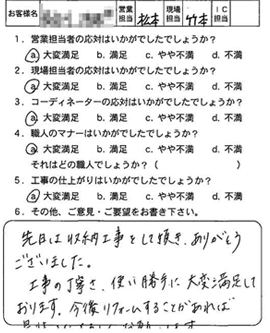 お客様名 営業担当 松本 現場担当 竹本 IC担当
1. 営業担当者の応対はいかがでしたでしょうか？
a. 大変満足 b. 満足 c. やや不満 d. 不満
2. 現場担当者の応対はいかがでしたでしょうか？
a. 大変満足 b. 満足 c. やや不満 d. 不満
3. コーディネーターの応対はいかがでしたでしょうか？
a. 大変満足 b. 満足 c. やや不満 d. 不満
4. 職人のマナーはいかがでしたでしょうか？
a. 大変満足 b. 満足 c. やや不満 d. 不満
それはどの職人でしょうか？（ ）
5. 工事の仕上がりはいかがでしたでしょうか？
a. 大変満足 b. 満足 c. やや不満 d. 不満
6. その他、ご意見・ご要望をお書き下さい。
先日は収納工事をして頂き、ありがとう
ございました。
工事の丁寧さ、使い勝手に大変満足して
おります。今後リフォームすることがあれば